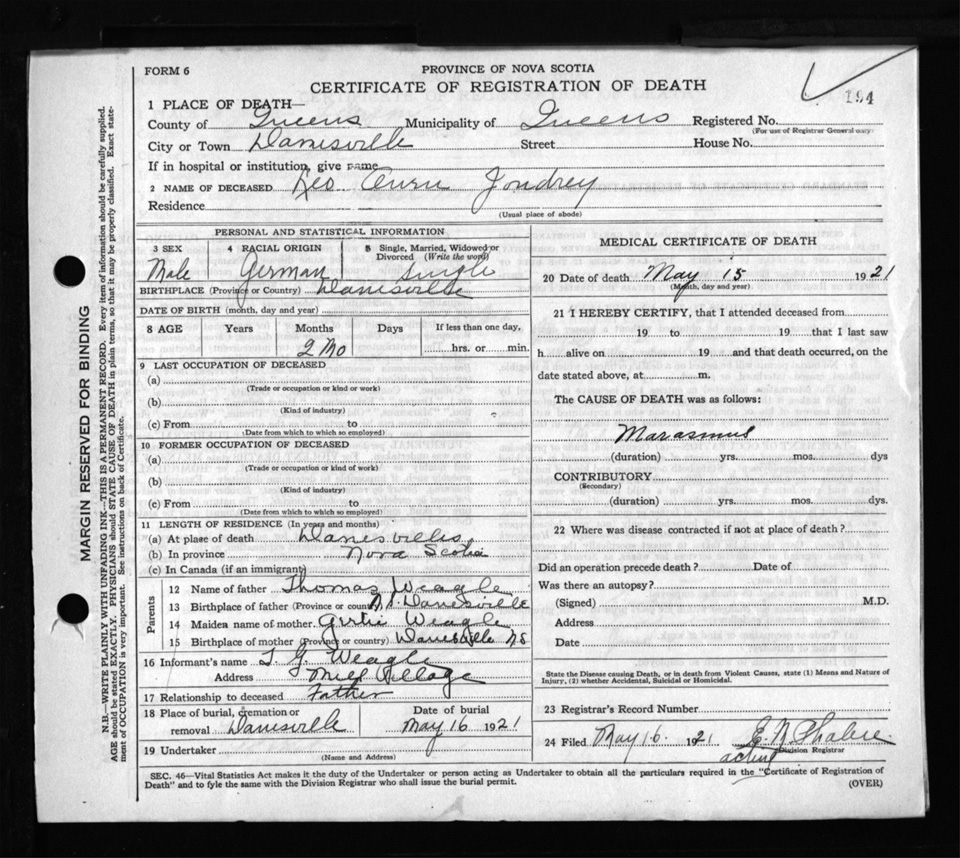 FORM 6
PROVINCE OF NOVA SCOTIA
CERTIFICATE OF REGISTRATION OF DEATH
194
1 PLACE OF DEATH—
County of Queens Municipality of Queens Registered No.
(For use of Registrar General only)
City or Town Danesville Street House No.
If in hospital or institution, give name
2 NAME OF DECEASED Leo Joudrey
Residence
(Usual place of abode)
PERSONAL AND STATISTICAL INFORMATION
3 SEX 4 RACIAL ORIGIN 5 Single, Married, Widowed or Divorced (Write the word)
Male German Single
BIRTHPLACE (Province or Country) Danesville
DATE OF BIRTH (month, day and year)
8 AGE Years Months Days If less than one day,
2 Mo hrs. or min.
9 LAST OCCUPATION OF DECEASED
(a)
(Trade or occupation or kind or work)
(b)
(Kind of industry)
(c) From to
(Date from which to which so employed)
10 FORMER OCCUPATION OF DECEASED
(a)
(Trade or occupation or kind of work)
(b)
(Kind of industry)
(c) From to
(Date from which to which so employed)
11 LENGTH OF RESIDENCE (In years and months)
(a) At place of death Danesville
(b) In province Nova Scotia
(c) In Canada (if an immigrant)
Parents
12 Name of father Thomas Weagle
13 Birthplace of father (Province or country) N.S. Danesville
14 Maiden name of mother Gertie Weagle
15 Birthplace of mother (Province or country) Danesville NS
16 Informant's name T. G. Weagle
Address Mill Village
17 Relationship to deceased Father
18 Place of burial, cremation or removal Danesville
Date of burial
May 16 1921
19 Undertaker
(Name and Address)
MEDICAL CERTIFICATE OF DEATH
20 Date of death May 15 1921
(Month, day and year)
21 I HEREBY CERTIFY, that I attended deceased from
19 to 19 that I last saw
h alive on 19 and that death occurred, on the
date stated above, at m.
The CAUSE OF DEATH was as follows:
Marasmus
(duration) yrs. mos. dys
CONTRIBUTORY
(Secondary)
(duration) yrs. mos. dys.
22 Where was disease contracted if not at place of death?
Did an operation precede death? Date of
Was there an autopsy?
(Signed) M.D.
Address
Date
State the Disease causing Death, or in death from Violent Causes, state (1) Means and Nature of
Injury, (2) whether Accidental, Suicidal or Homicidal.
23 Registrar's Record Number
24 Filed May 16. 1921
Division Registrar
acting
SEC. 46—Vital Statistics Act makes it the duty of the Undertaker or person acting as Undertaker to obtain all the particulars required in the "Certificate of Registration of
Death" and to fyle the same with the Division Registrar who shall issue the burial permit.
(OVER)
MARGIN RESERVED FOR BINDING
N.B.—WRITE PLAINLY WITH UNFADING INK—THIS IS A PERMANENT RECORD. Every item of information should be carefully supplied.
AGE should be stated EXACTLY. PHYSICIANS should STATE CAUSE OF DEATH in plain terms, so that it may be properly classified. Exact state-
ment of OCCUPATION is very important. See instructions on back of Certificate.